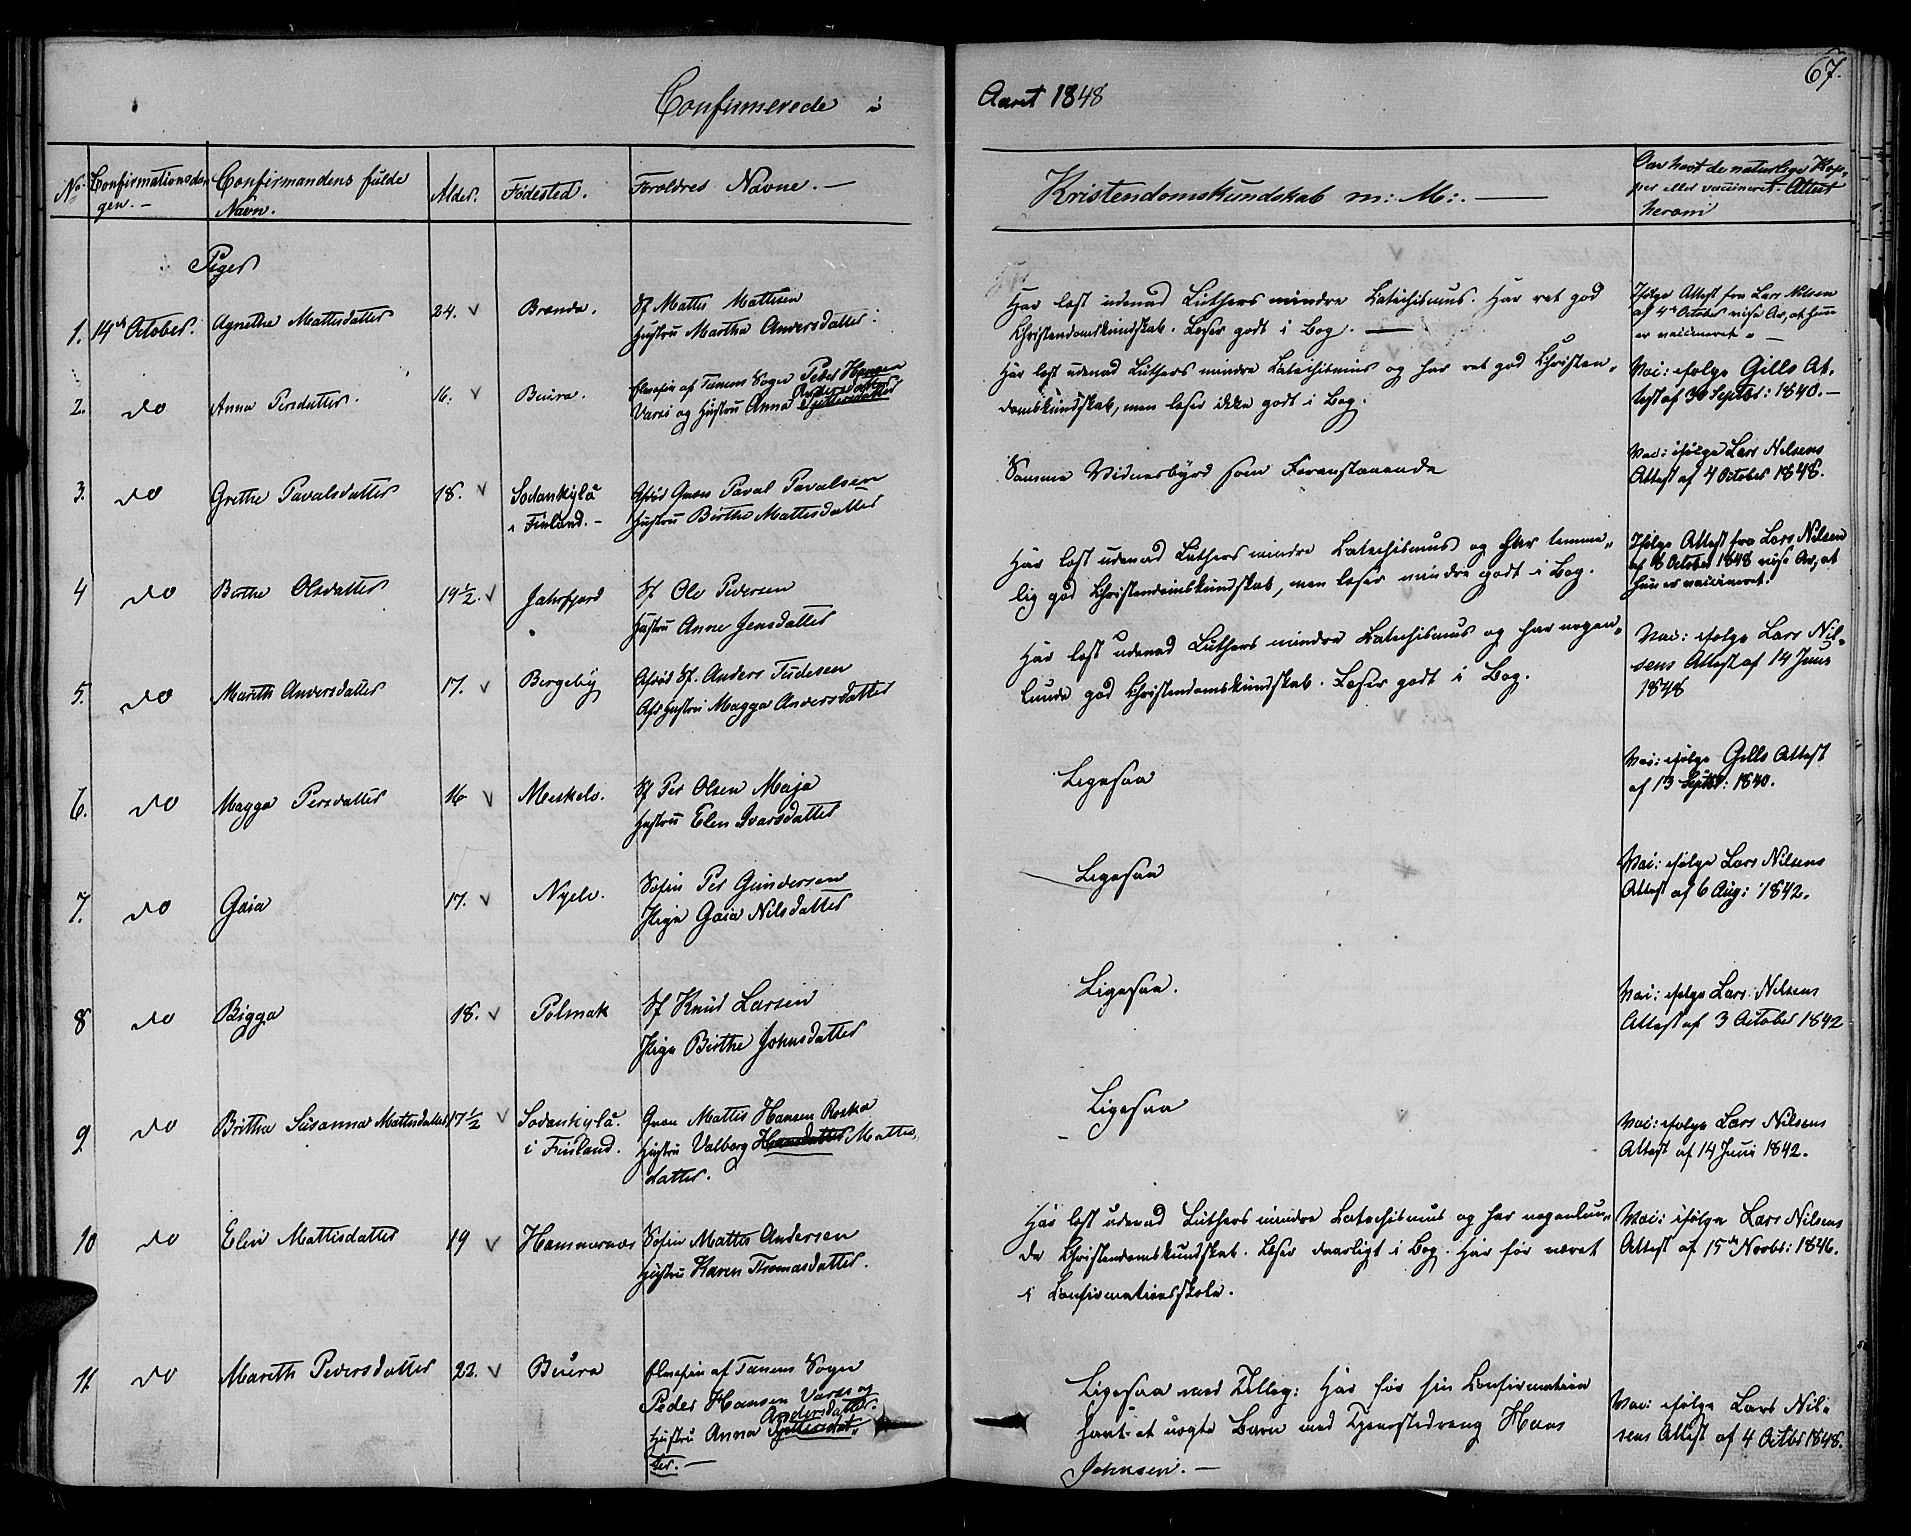 67.
Confirmerede i Aaret 1848
No Confirmationsda-
gen.- Confirmandens fulde
Navn. Alder. Fødested. Foreldres Navne. — Kristendomskundskab m: M:. — Har havt de naturlige Kop-
per eller vaccineret. Attest
herom
Piger
1. 14de October. Agnethe Mattisdatter 24. Brenda. Sf Mattis Mattisen
Hustru Marthe Andersdatter.
Har læst udenad Luthers mindre Katechismus. Har ret god
Christendomskundskab. Læser godt i Bog. —
Ifølge Attest fra Lars Nilsen
af 4de October nysn. Ar, at hun
er vaccineret. —
2. do Anna Persdatter. 16. Beura. Elvefin af Tanens Sogn Peder Hansen
Varsi og Hustru Anna Andersdatter
Har læst udenad Luthers mindre Katechismus og har ret god Christen-
domskundskab, men læser ikke godt i Bog.
Vac: ifølge Gills At-
test af 30 Septbr: 1840. —
3. do Grethe Pavalsdatter 18. Sodankylä
i Finland. - Afdøde Qvæn Paval Pavalsen
Hustru Birthe Mattisdatter
Samme Vidnesbyrd som Foranstaaende
Vac: ifølge Lars Nilsens
Attest af 4 October 1848.
4 do Birthe Olsdatter 19½. Jahrfjord Sf Ole Pedersen
Hustru Anne Jensdatter
Har læst udenad Luthers mindre Katechismus og har temme-
lig god Christendomskundskab, men læser mindre godt i Bog.
Ifølge Attest fra Lars Nilsen
af 8 October 1848 nysn Ar, at
hun er vaccineret.
5. do Marith Andersdatter 17. Bergeby Afdød Sf. Anders Fudesen
Afd Hustru Magga Andersdatter
Har læst udenad Luthers mindre Katechismus og har nogen-
lunde god Christendomskundskab. Læser godt i Bog.
Vac: ifølge Lars Nil-
sens Attest af 14 Juni
1848
6. do Magga Persdatter 16 Meskelv. Sf Per Olsen Maja
Hustru Elen Ivarsdatter
Ligesaa
Vac: ifølge Gills Attest
af 13 Septbr: 1840.
7. do Gaia 17. Nyelv. Søfin Per Gundersen
Pige Gaia Nilsdatter
Ligesaa
Vac: ifølge Lars Nilsens
Attest af 6 Aug: 1842.
8 do Bigga 18. Polmak Sf Knud Larsen
Pige Birthe Johnsdatter
Ligesaa.
Vac: ifølge Lars Nilsens
Attest af 3 October 1842
9. do Britha Susanna Mattisdatter 17½ Sodankylä.
i Finland. Qvæn Mattis Hansen Roska
Hustru Valborg Hansdatter Mattis-
datter.
Ligesaa
Vac: ifølge Lars Nilsens
Attest af 14 Juni 1842.
10 do Elin Mattisdatter 19 Hammernæs Søfin Mattis Andersen
Hustru Karen Thomasdatter.
Har læst udenad Luthers mindre Katechismus og har nogenlun-
de Christendomskundskab. Læser daarligt i Bog. Har før været
i Confirmationsskole.
Vac: ifølge Lars Nilsens
Attest af 15de Novbr: 1846.
11 do Marith Pedersdatter 22. Beura Elvefin af Tanens Sogn
Peder Hansen Varsi og
Hustru Anna Andersdatter.
Ligesaa med Tillæg: Har før sin Confirmation
havt et uægte Barn med Tjenstedreng Hans
Johnsen. —
Vac: ifølge Lars Nil-
sens Attest af 4 Octbr 1848.